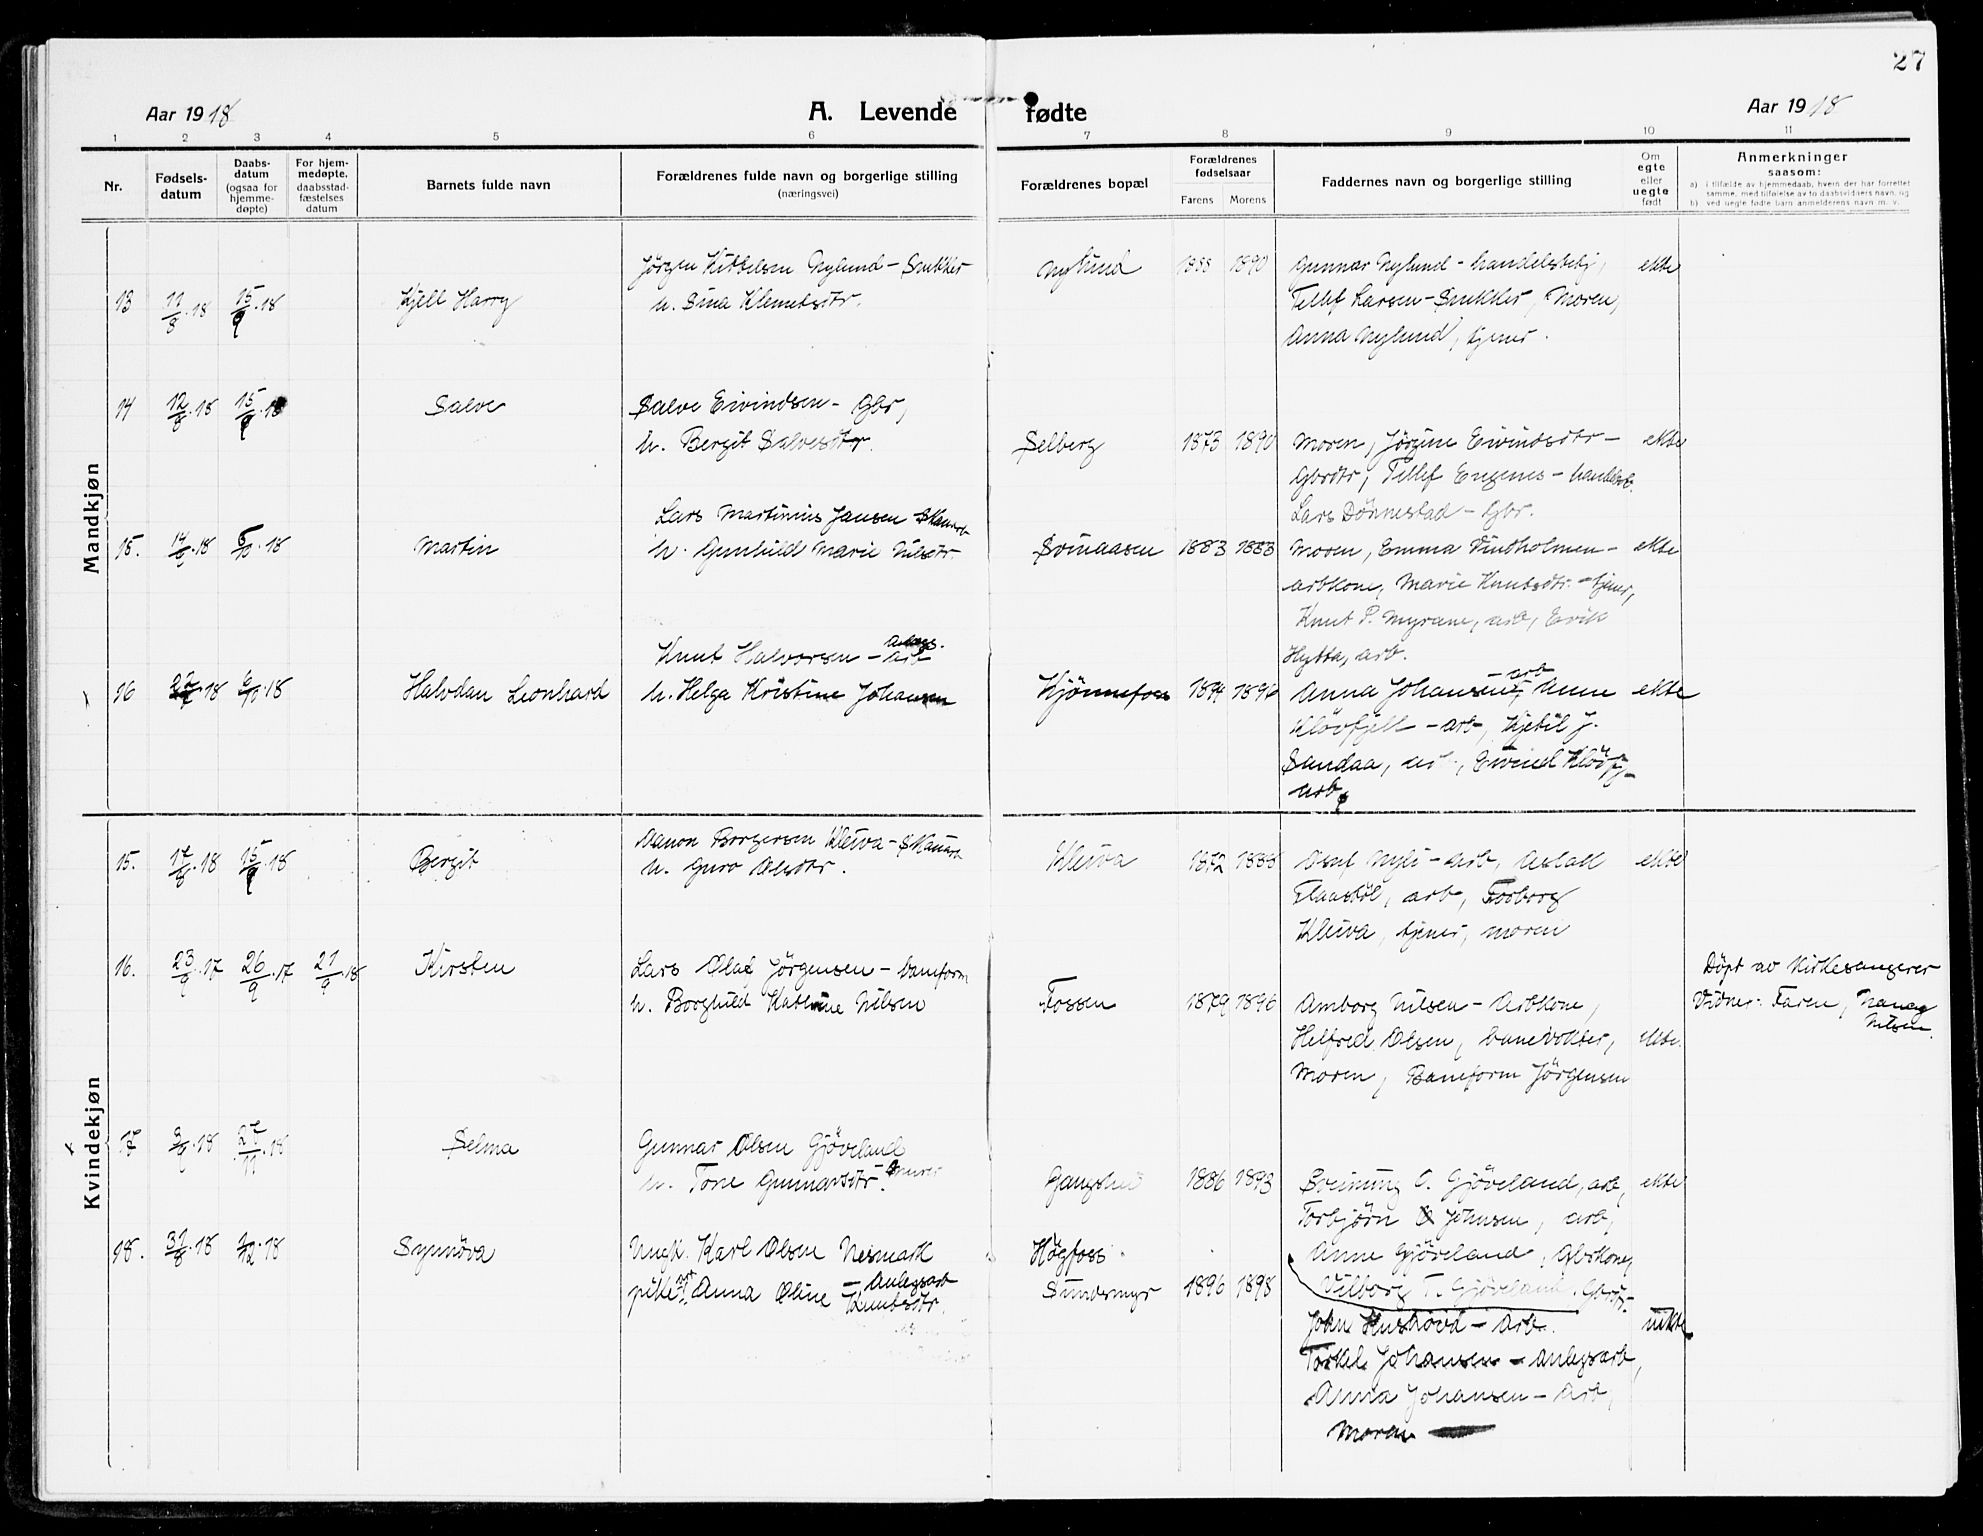 27
Aar 1918 A. Levende fødte Aar 1918
1 2 3 4 5 6 7 8 9 10 11
Nr.
Fødsels-
datum
Daabs-
datum
(ogsaa for
hjemme-
døpte)
For hjem-
medøpte,
daabsstad-
fæstelses
datum
Barnets fulde navn
Forældrenes fulde navn og borgerlige stilling
(næringsvei)
Forældrenes bopæl
Forældrenes
fødselsaar
Farens Morens
Faddernes navn og borgerlige stilling
Om
egte
eller
uegte
født
Anmerkninger
saasom:
a) i tilfælde av hjemmedaab, hvem der har forrettet
samme, med tilføielse av to daabsvidners navn, og
b) ved uegte fødte barn anmelderens navn m. v.
Mandkjøn
Jörgen Kittelsen Nylund - Snikker Nylund 1888 1890 Gunnar Nylund - handelsbetj, ekte
13 11/8.18 15/9.18 Kjell Harry h. Sina Klemetsdtr. Tellef Larsen - Snikker, Moren,
Anna Nylund, tjener.
14 12/8.18 15/9.18 Salve Salve Eivindsen - Gbr,
h. Bergit Salvesdtr. Selberg 1873 1890 Moren, Jörgine Eivindsdtr - ekte
Gbrdtr, Tellef Engenes - handelsb.
Lars Martinius Jansen Skauarb Lars Dönnestad - Gbr.
15. 14/9.18 6/10.18 Martin h. Gunhild Marie Nilsdtr. Svinaasen 1883 1883 Moren, Emma Vindholmen - ekte
arbkone, Marie Knutsdtr. - tjener,
Knut P. Myrane, arb, Erik
Knut Halvorsen - Anlægs. arb Hytta, arb.
16 .18 6/10.18 Halvdan Leonhard h. Helga Kristine Johansen Kjönnefoss 1894 1896 Anna Johansen - arb, Anne ekte
Klövfjell - arb, Kjetil J.
Sandaa, arb., Eivind Klövfj -
arb,
Kvindekjøn
Danon Borgersen Kleiva - Skauarb
15. 17/8.18 15/9.18 Bergit h. Guro Olsdtr. Kleiva 1872 1888 Olaf Nyli - arb, Aslak ekte
Flaastöl, arb, Torborg
Kleiva, tjener, moren
16. 23/9.17 26/9.17 21/9.18 Kirsten Lars Olaf Jörgensen - baneform Döpt av Kirkesangerer
h. Borghild Katrine Nilsen Fossen 1879 1896 Amborg Nilsen - Arbkone, Vidner: Faren, Nanny
Nilsen.
Helfred Olsen, banevokter, ekte.
Moren, Baneform Jörgensen
17 .18 27/11.18 Selma Gunnar Olsen Gjöveland
h. Tone Gunnarsdtr. 1886 1893 Breinung O. Gjöveland, arb, ekte
Torbjörn Johnsen, arb,
18. 31/8.18 1/12.18 Synnöva Ungk. Karl Olsen Nesmark Högfoss Anne Gjöveland, Gbrkone,
pike Anna Oline Knutsdtr. - Anlegsarb Sundsmyr 1896 1898 Vilborg T. Gjöveland. Gbrdtr.
John Hushovd - Arb. uekte
Torkel Johansen - Anlegsarb,
Anna Johansen - Arb,
Moren